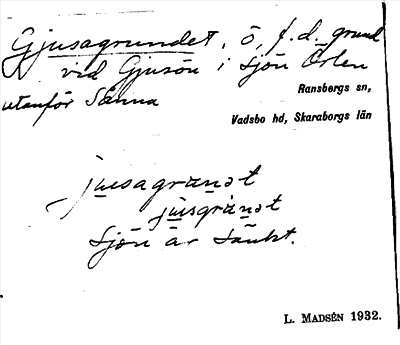 Gjusagrundet, ö, f.d. grund
vid Gjusön i sjön Örlen
utanför Sänna
Ransbergs sn,
Vadsbo hd, Skaraborgs län
jusagranət
jusgranət
Sjön är sänkt.
L. MADSÉN 1932.